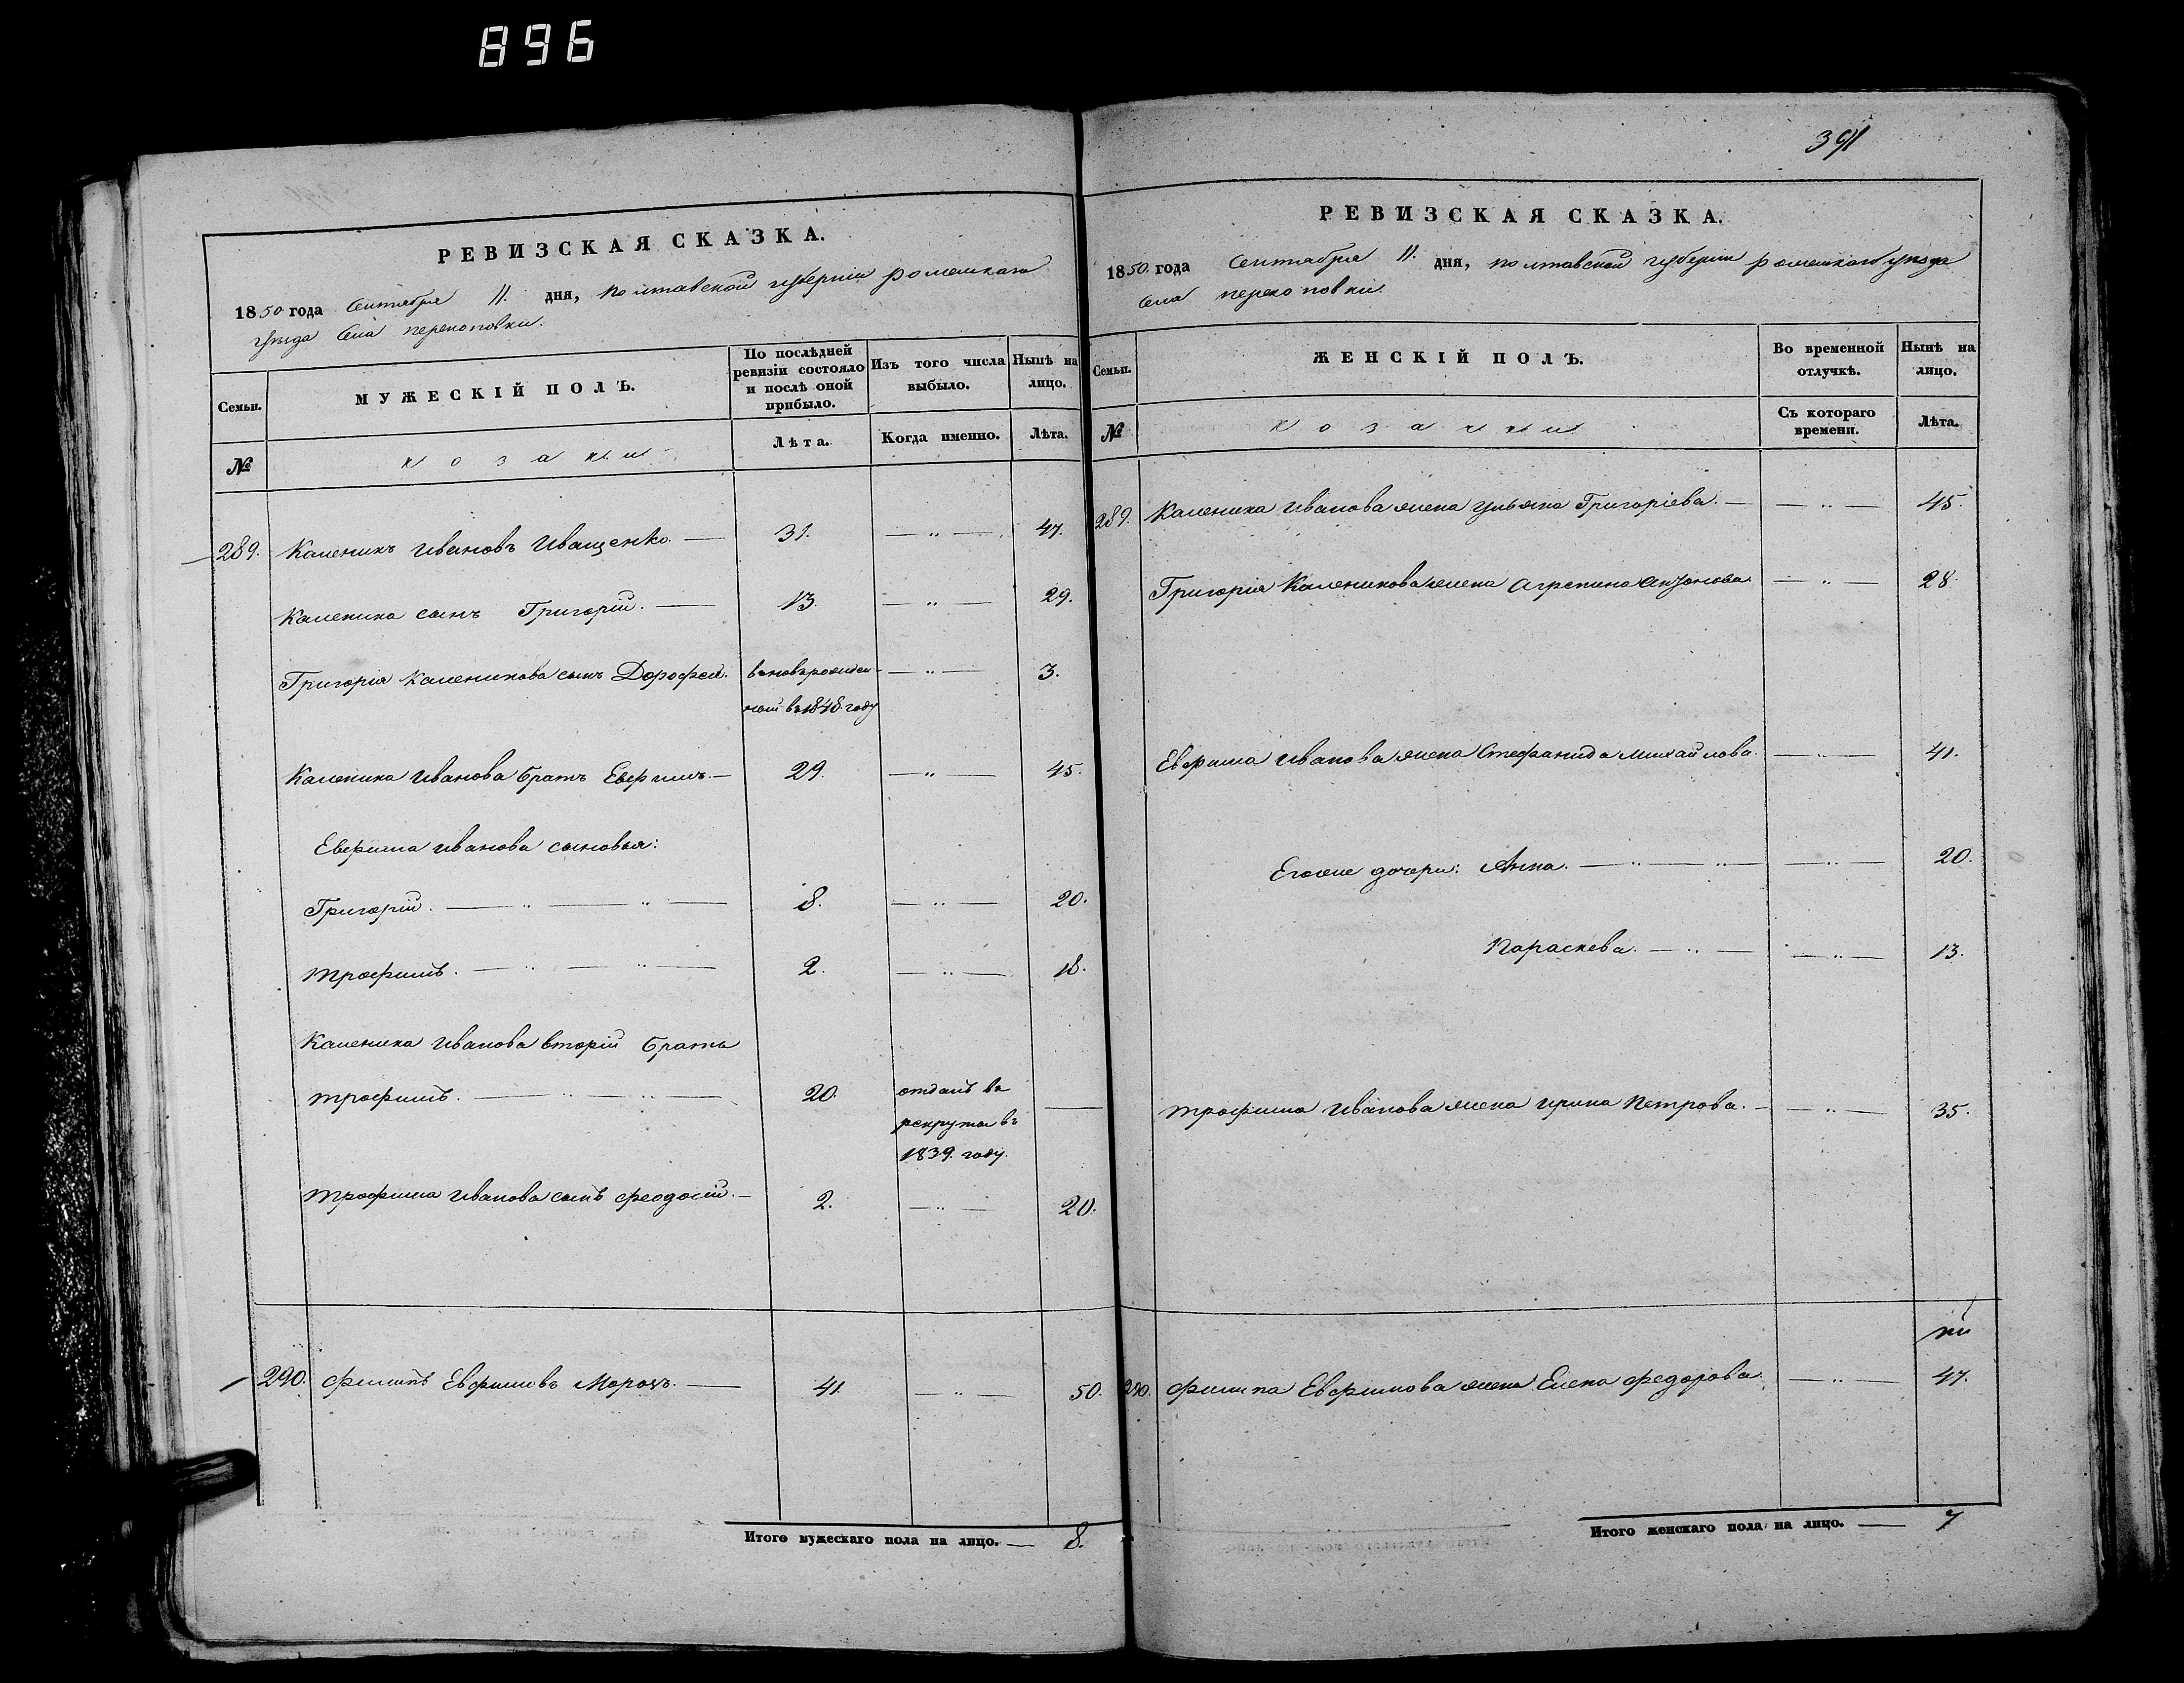 896
РЕВИЗСКАЯ СКАЗКА.
1850 года Сентября 11. дня, Полтавской губерніи Роменскаго
уезда Села Перекоповки.
Семьи.
МУЖЕСКІЙ ПОЛЪ.
По послѣдней ревизіи состояло и послѣ оной прибыло.
Изъ того числа выбыло.
Нынѣ на лицо.
№
козаки
Лѣта.
Когда именно.
Лѣта.
289. Каленикъ Ивановъ Иващенко. — 31. — „ — 47.
Каленика сынъ Григорій. — 13. — „ — 29.
Григорія Каленикова сынъ Дорофей. вновьрожден- — „ — 3.
ный въ 1848. году
Каленика Иванова братъ Евфимъ. — 29. — „ — 45.
Евфима Иванова сыновья:
Григорій. — „ — „ — 8. — „ — 20.
Трофимъ. — „ — „ — 2. — „ — 18.
Каленика Иванова вторій братъ
Трофимъ. — „ — „ — 20. отданъ въ —
рекруты въ
1839. году.
Трофима Иванова сынъ Феодосій. — 2. — „ — 20.
290. Филипъ Евфимовъ Морозъ. — 41. — „ — 50.
Итого мужескаго пола на лицо. — 8.
391
РЕВИЗСКАЯ СКАЗКА.
1850. года Сентября 11. дня, Полтавской губерніи Роменскаго уезда
Села Перекоповки.
Семьи.
ЖЕНСКІЙ ПОЛЪ.
Во временной отлучкѣ.
Нынѣ на лицо.
№
козачки
Съ котораго времени.
Лѣта.
289. Каленика Иванова жена Ульяна Григоріева. — — „ — 45.
Григорія Каленикова жена Агрепина Антонова — „ — 28.
Евфима Иванова жена Стефанида Михайлова. — „ — 41.
Его же дочери: Анна. — „ — „ — — „ — 20.
Параскева. — „ — — „ — 13.
Трофима Иванова жена Ирина Петрова. — — „ — 35.
290. Филипа Евфимова жена Елена Федорова. — „ — 47.
Итого женскаго пола на лицо. — 7